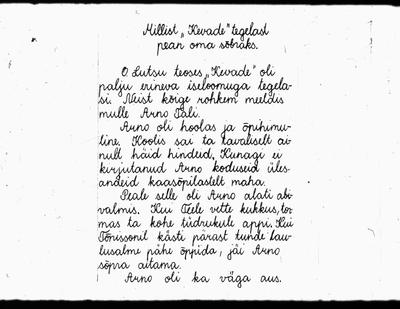 Millist „Kevade" tegelast
pean oma sõbraks.
O. Lutsu teoses „Kevade" oli
palju erineva iseloomuga tegela-
si. Neist kõige rohkem meeldis
mulle Arno Tali.
Arno oli hoolas ja õpihimu-
line. Koolis sai ta tavaliselt ai-
nult häid hindeid. Kunagi ei
kirjutanud Arno koduseid üles-
andeid kaasõpilastelt maha.
Peale selle oli Arno alati abi-
valmis. Kui Teele vette kukkus, tor-
mas ta kohe tüdrukule appi. Kui
Tõnissonil kästi pärast tunde lau-
lusalme pähe õppida, jäi Arno
sõpra aitama.
Arno oli ka väga aus.